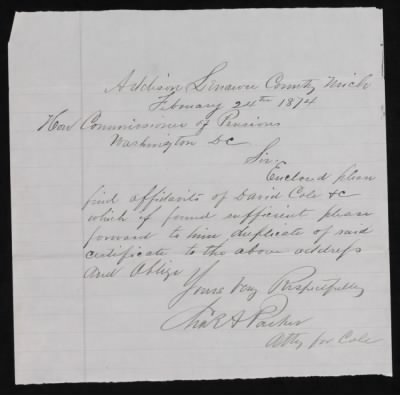 Addison Lenawee County Mich
Febuary 24th 1874
Hon Commissioner of Pensions
Washington DC
Sir.
Enclosed pleas
find affidavits of David Cole &c
which if found sufficient pleas
forward to him duplicate of said
certificate to the above address
And Oblige
Yours very Respectfully
A Parker
Atty for Cole